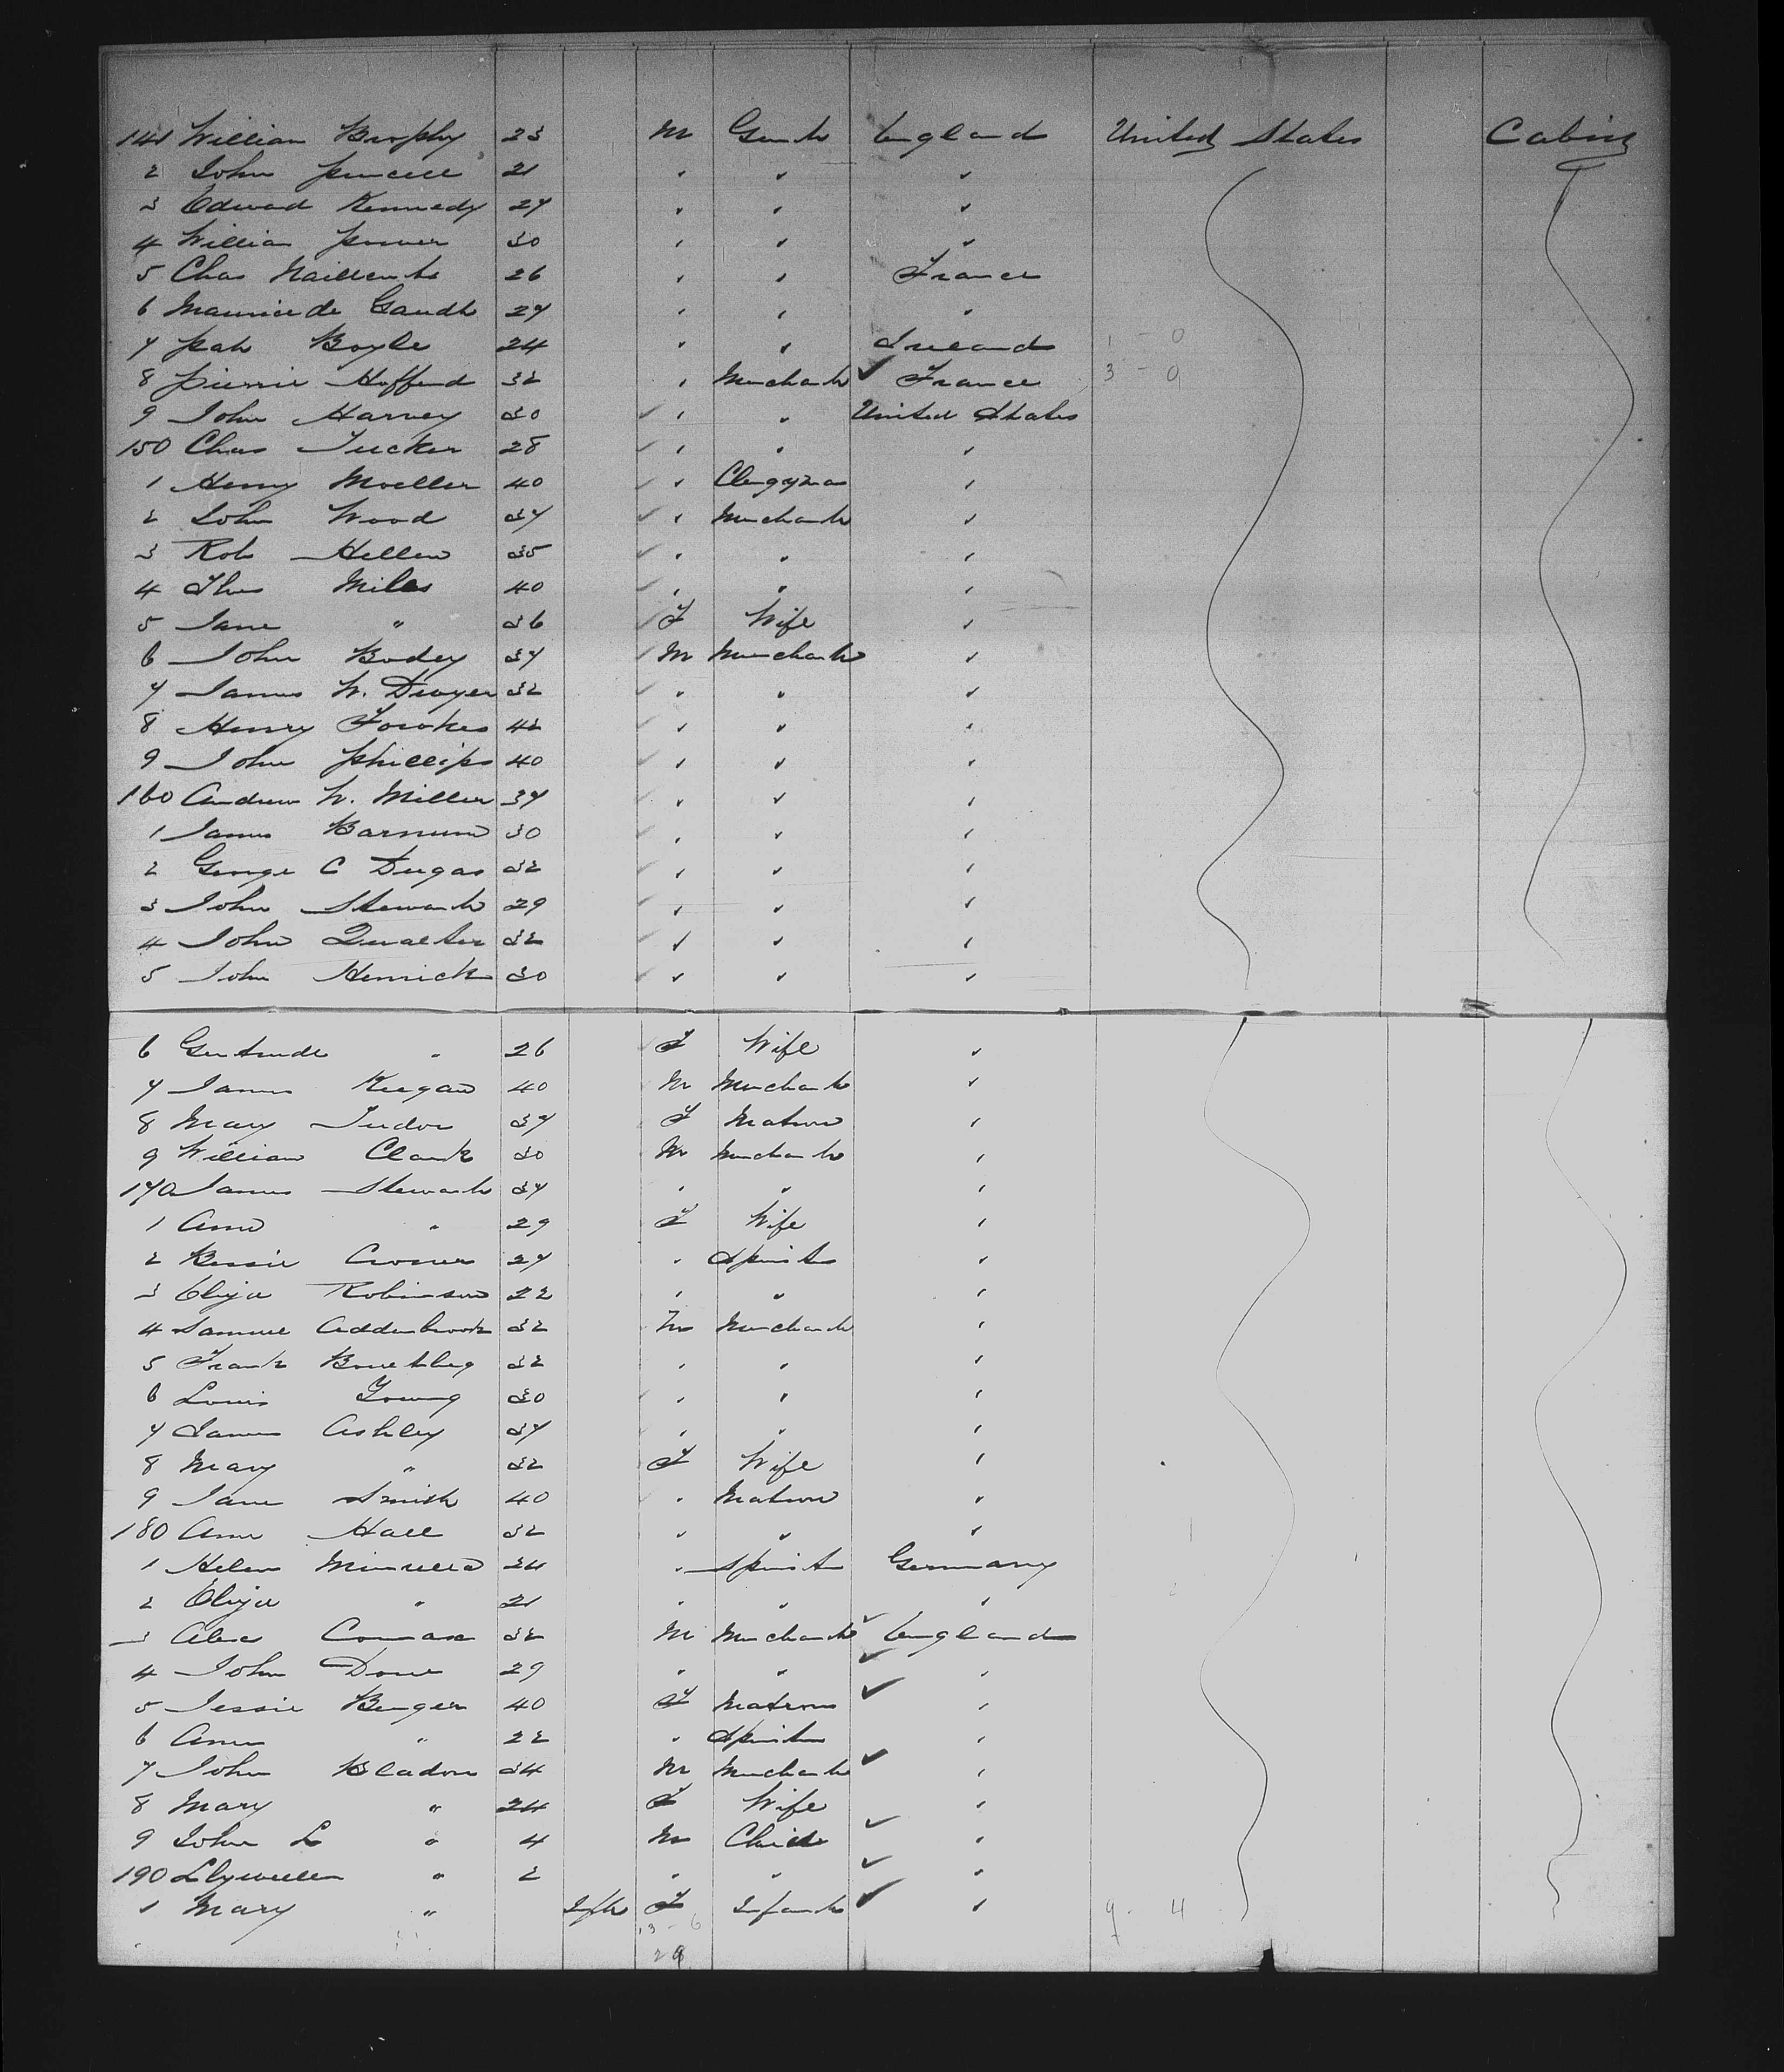 141 William Brophy 23 M Gent England United States Cabin
2 John Purcell 21 " " "
3 Edward Kennedy 27 " " "
4 William Power 30 " " "
5 Chas 26 " " France
6 Maurice de Gandt 27 " " "
7 Pat Boyle 24 " " Ireland 1 - 0
8 Pierrie Hoffend 32 " Merchant France 3 - 0
9 John Harvey 30 " " United States
150 Chas Tucker 28 " " "
1 Henry Moeller 40 " Clergyman "
2 John Wood 37 " Merchant "
3 Rob Hellen 35 " " "
4 Thos Miles 40 " " "
5 Jane " 36 F Wife "
6 John Bodey 37 M Merchant "
7 James W. Dwyer 32 " " "
8 Henry Fowkes 42 " " "
9 John Phillips 40 " " "
160 Andrew W. Miller 37 " " "
1 James Barnum 30 " " "
2 George C Dugas 32 " " "
3 John Stewart 29 " " "
4 John Qualter 32 " " "
5 John Herrick 30 " " "
6 Gertrude " 26 F Wife "
7 James Keegan 40 M Merchant "
8 Mary Tudor 37 F Matron "
9 William Clark 30 M Merchant "
170 James Stewart 37 " " "
1 Ann " 29 F Wife "
2 Bessie 27 " Spinster "
3 Eliza Robinson 22 " " "
4 Samuel Addenbrook 32 M Merchant "
5 Frank 32 " " "
6 Louis Young 30 " " "
7 James Ashley 37 " " "
8 Mary " 32 F Wife "
9 Jane Smith 40 " Matron "
180 Ann Hall 32 " " "
1 Helen 24 " Spinster Germany
2 Eliza " 21 " " "
3 Alex 32 M Merchant England
4 John Dove 29 " " "
5 Jessie Benger 40 F Matron "
6 Ann " 22 " Spinster "
7 John Bladon 34 M Merchant "
8 Mary " 24 F Wife "
9 John L " 4 M Child "
190 Llywellen " 2 " " "
1 Mary " Inft F Infant " 9 - 4
13 - 6
29